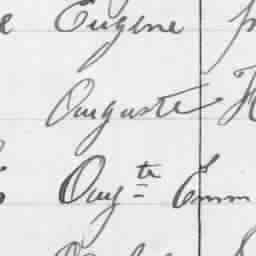 Eugene
Auguste
Augte Emm